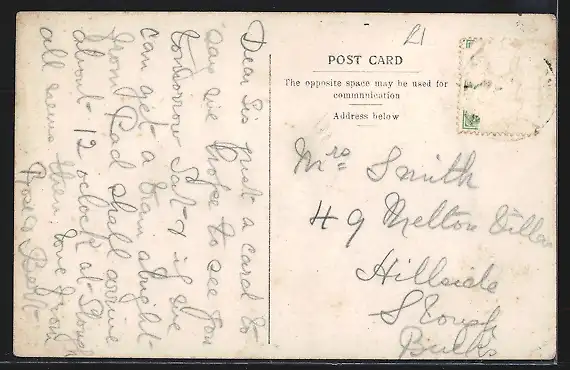 21
POST CARD
The opposite space may be used for
communication
Address below
Dear Sis just a card to
say we hope to see you
tomorrow Sat-y if we
can get a train alright
from Pad shall arrive
about 12 oclock at Slough
all news then, love from
Rose & Bert
Mrs Smith
49 Melton Villas
Hillside
Slough
Bucks